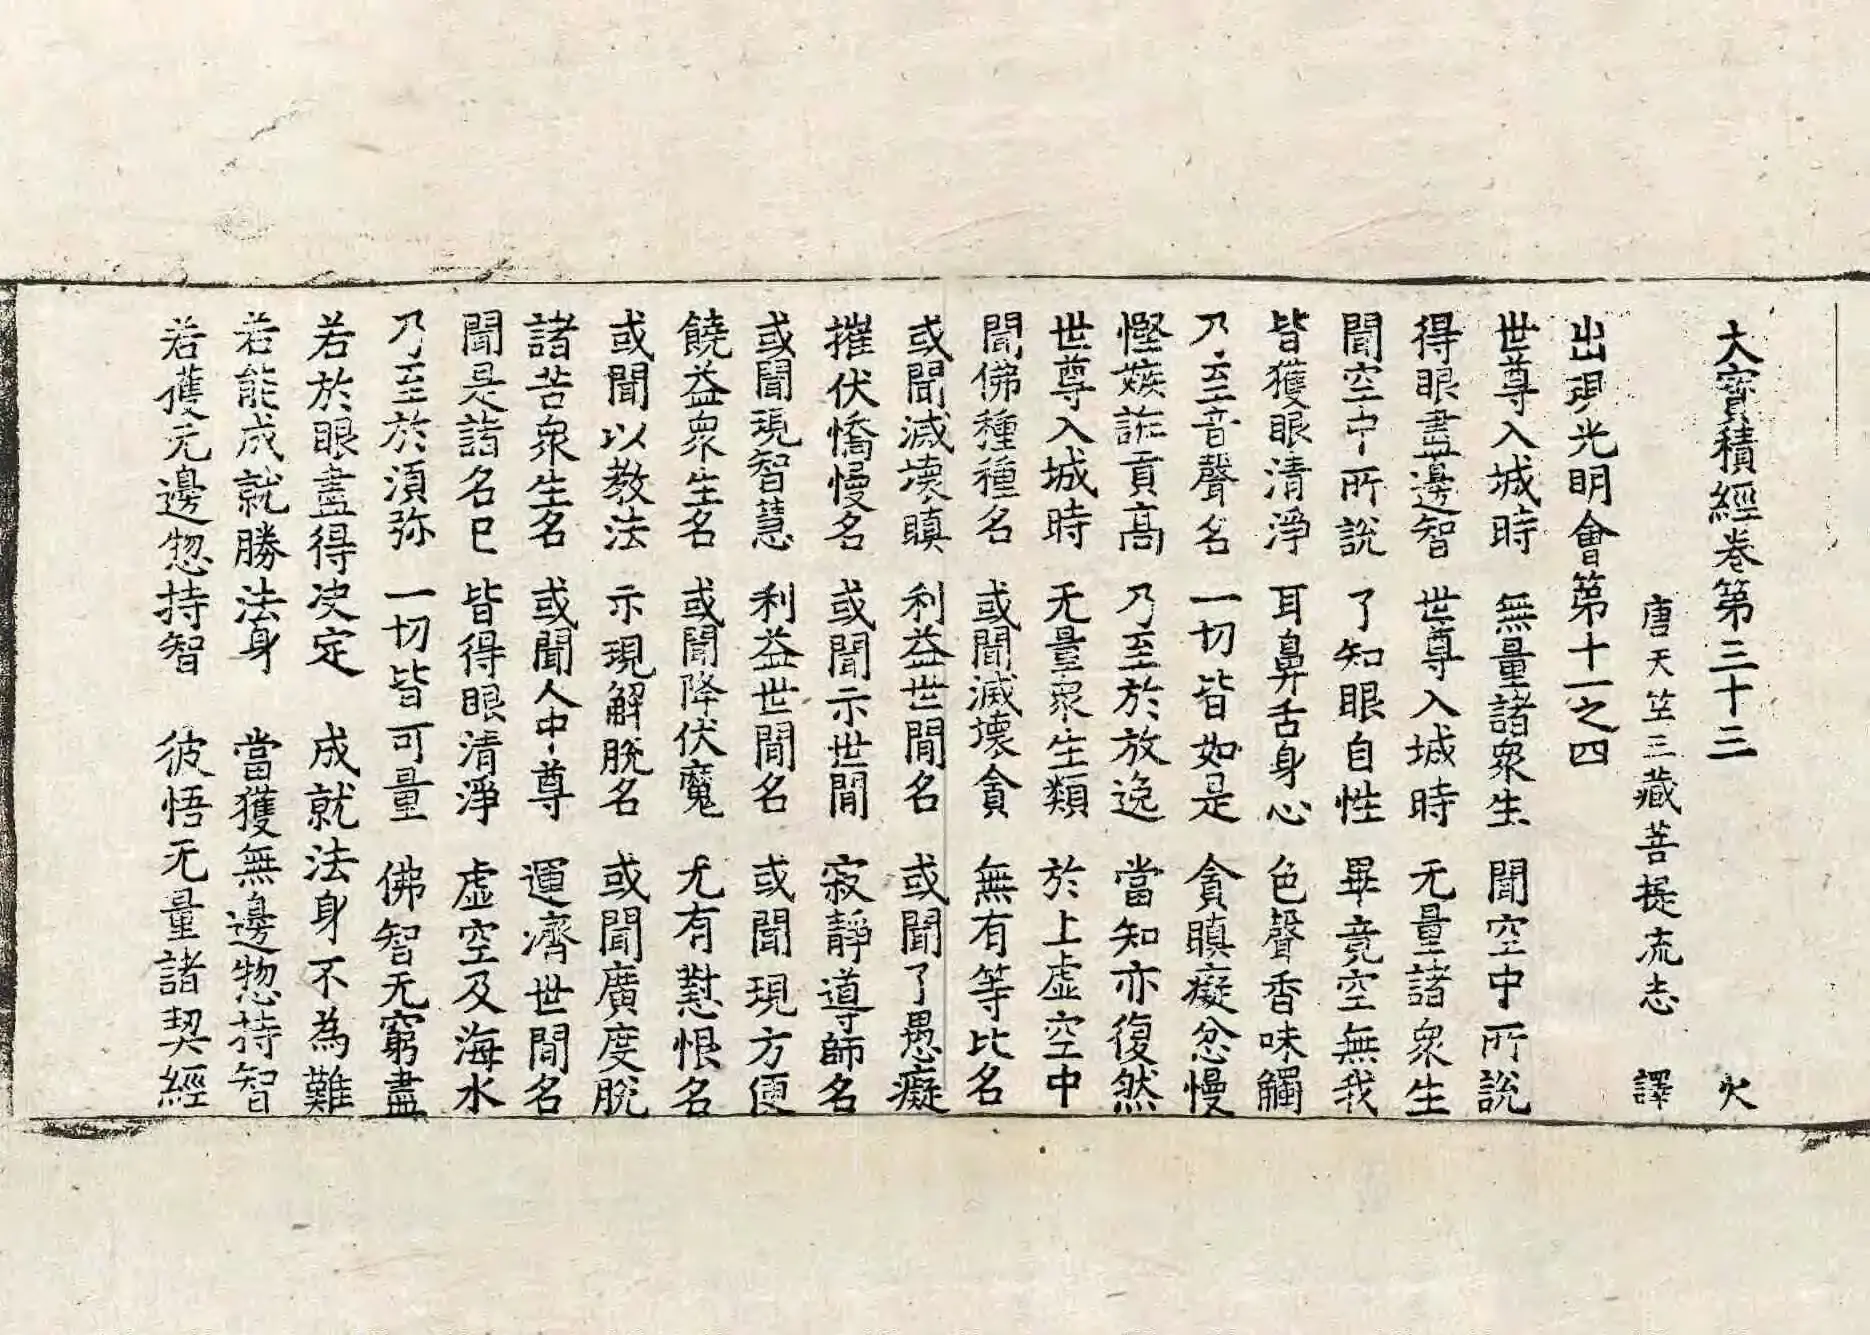 大寶積經卷第三十三 火
唐天竺三藏菩提流志 譯
出現光明會第十一之四
世尊入城時 無量諸衆生 聞空中所說
得眼盡邊智 世尊入城時 无量諸衆生
聞空中所說 了知眼自性 畢竟空無我
皆獲眼清淨 耳鼻舌身心 色聲香味觸
乃至音聲名 一切皆如是 貪瞋癡忿慢
慳嫉誑貢高 乃至於放逸 當知亦復然
世尊入城時 无量衆生類 於上虛空中
聞佛種種名 或聞滅壞貪 無有等比名
或聞滅壞瞋 利益世閒名 或聞了愚癡
摧伏憍慢名 或聞示世閒 寂靜導師名
或聞現智慧 利益世閒名 或聞現方便
饒益衆生名 或聞降伏魔 无有懟恨名
或聞以教法 示現解脫名 或聞廣度脫
諸苦衆生名 或聞人中尊 運濟世閒名
聞是諸名已 皆得眼清淨 虛空及海水
乃至於須弥 一切皆可量 佛智无窮盡
若於眼盡得决定 成就法身不為難
若能成就勝法身 當獲無邊惣持智
若獲无邊惣持智 彼悟无量諸契經